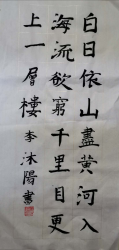 白日依山盡黃河入
海流欲窮千里目更
上一層樓 李沐陽書